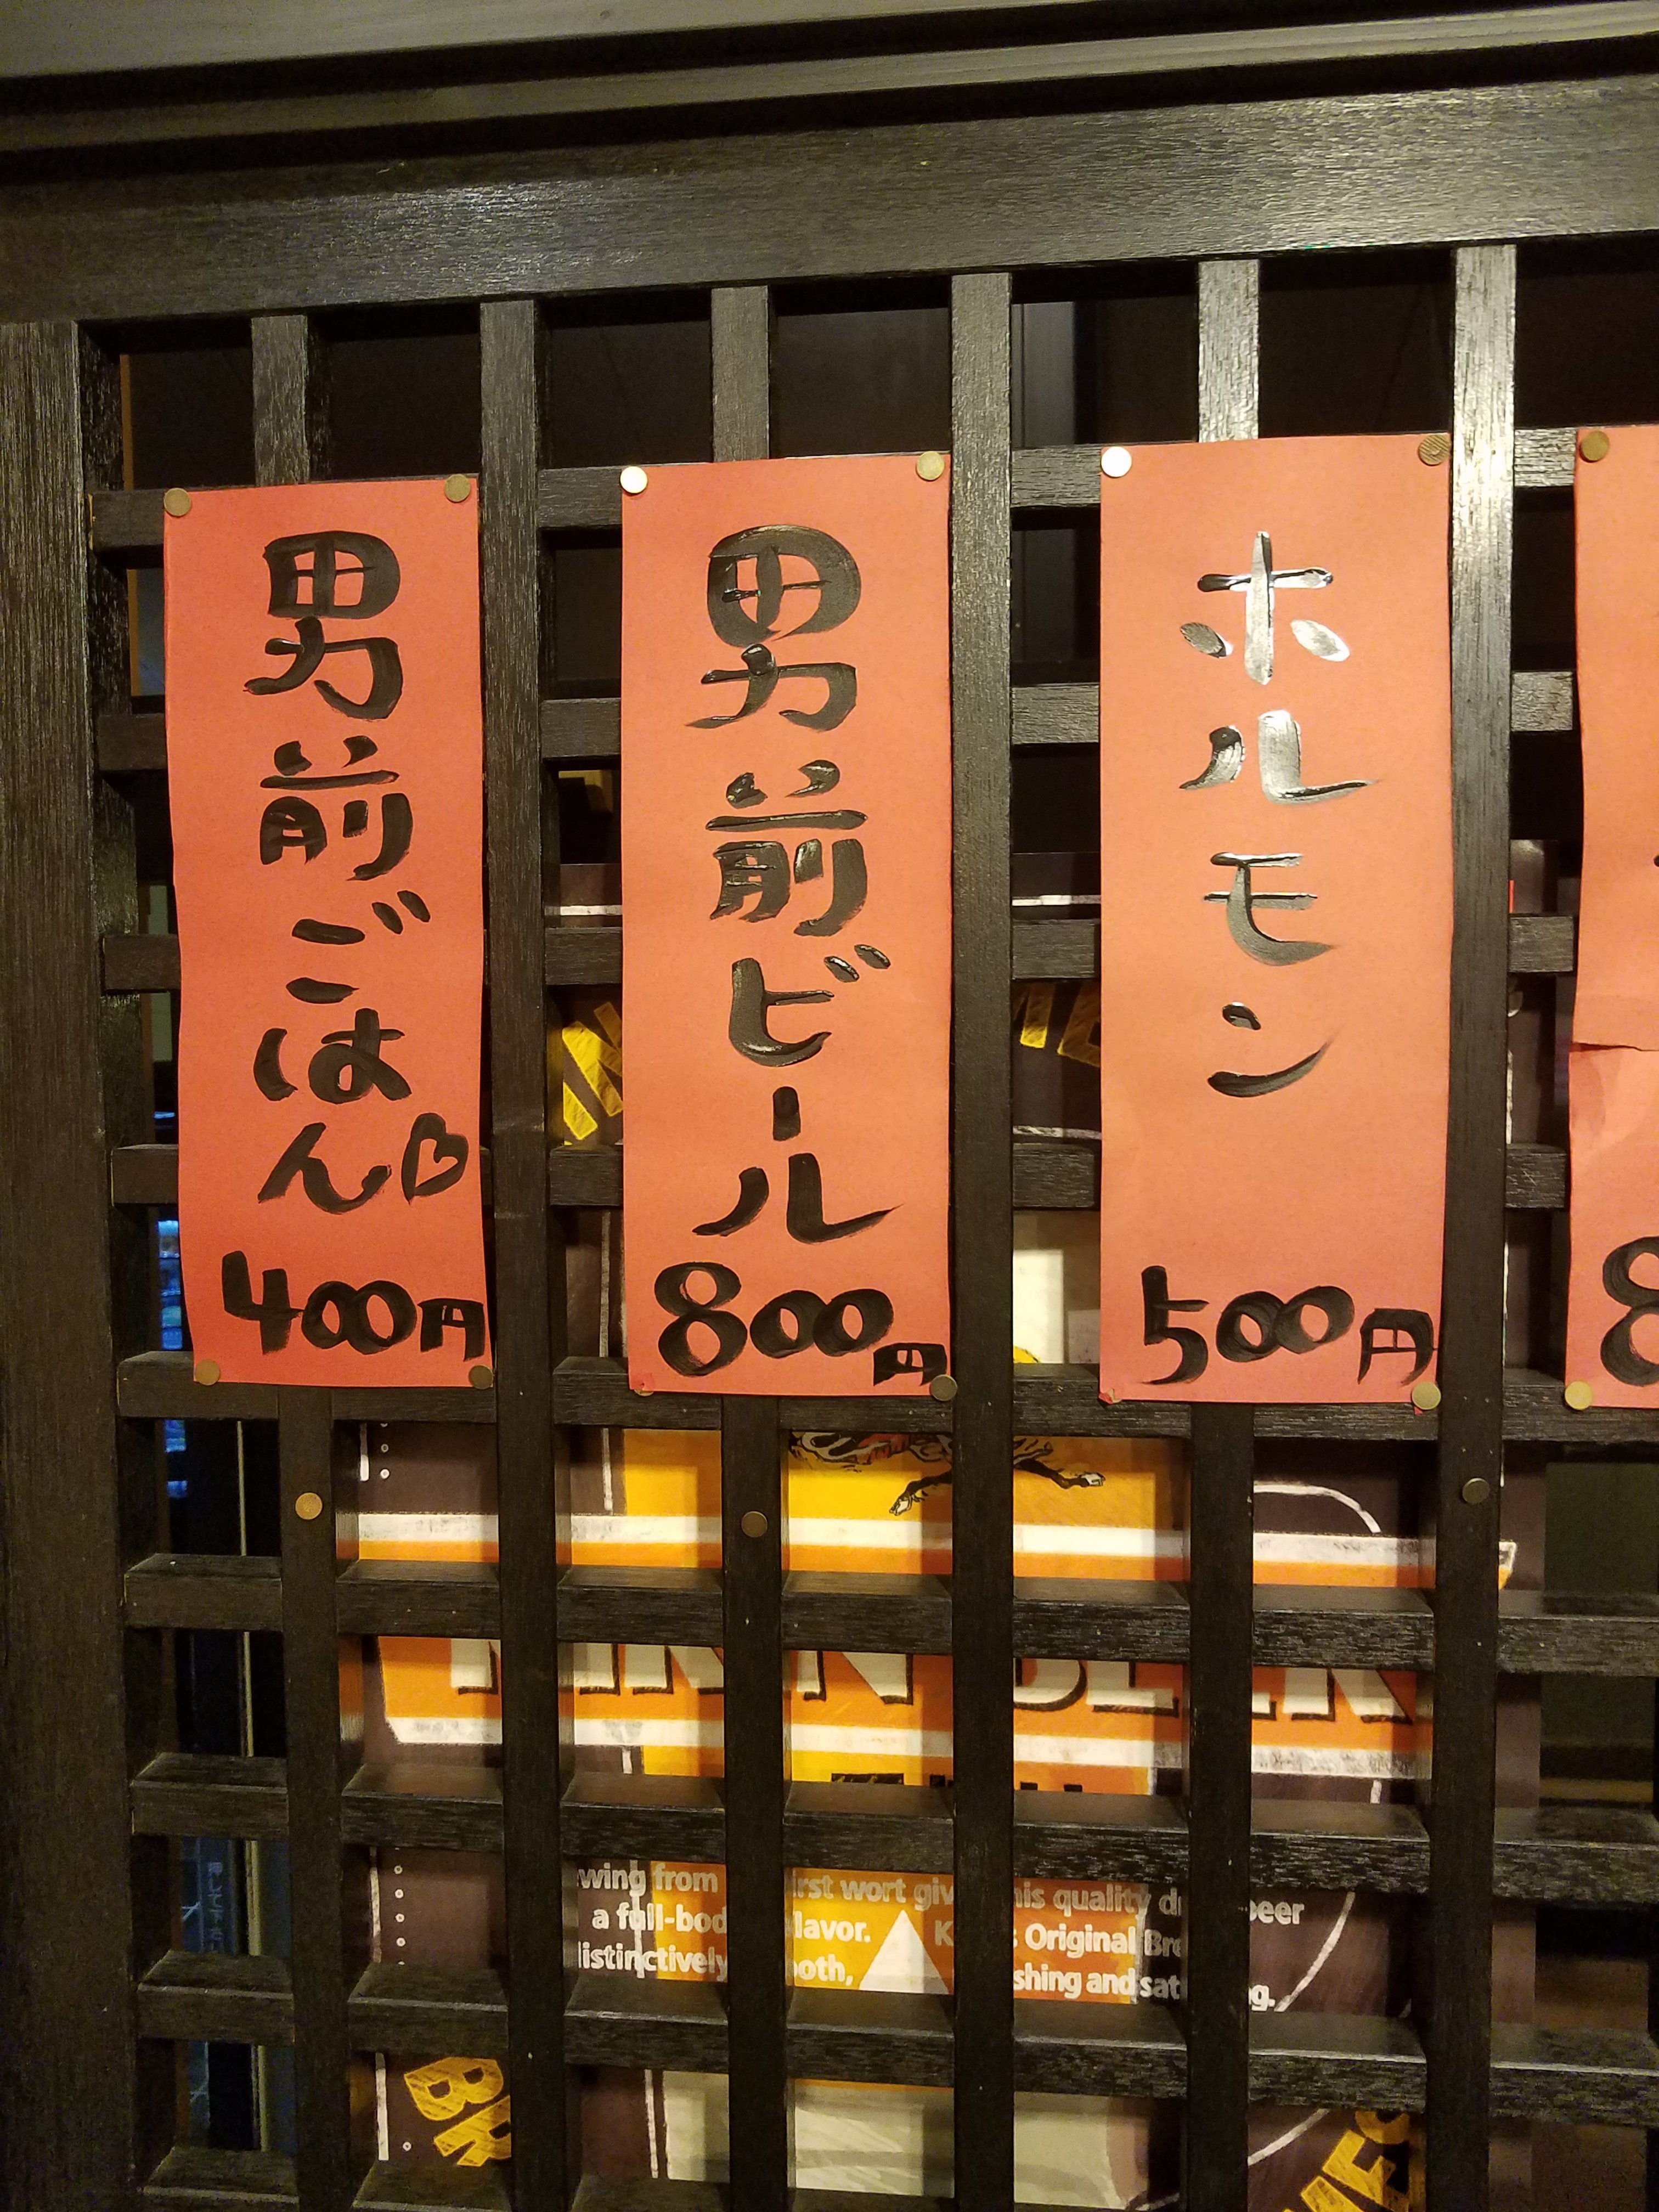 男前ごはん♡
400円
男前ビール
800円
ホルモン
500円
8
KIRIN BEER
wing from irst wort giv his quality d beer
a full-bod lavor. K Original Bre
distinctively oth, shing and sat g.